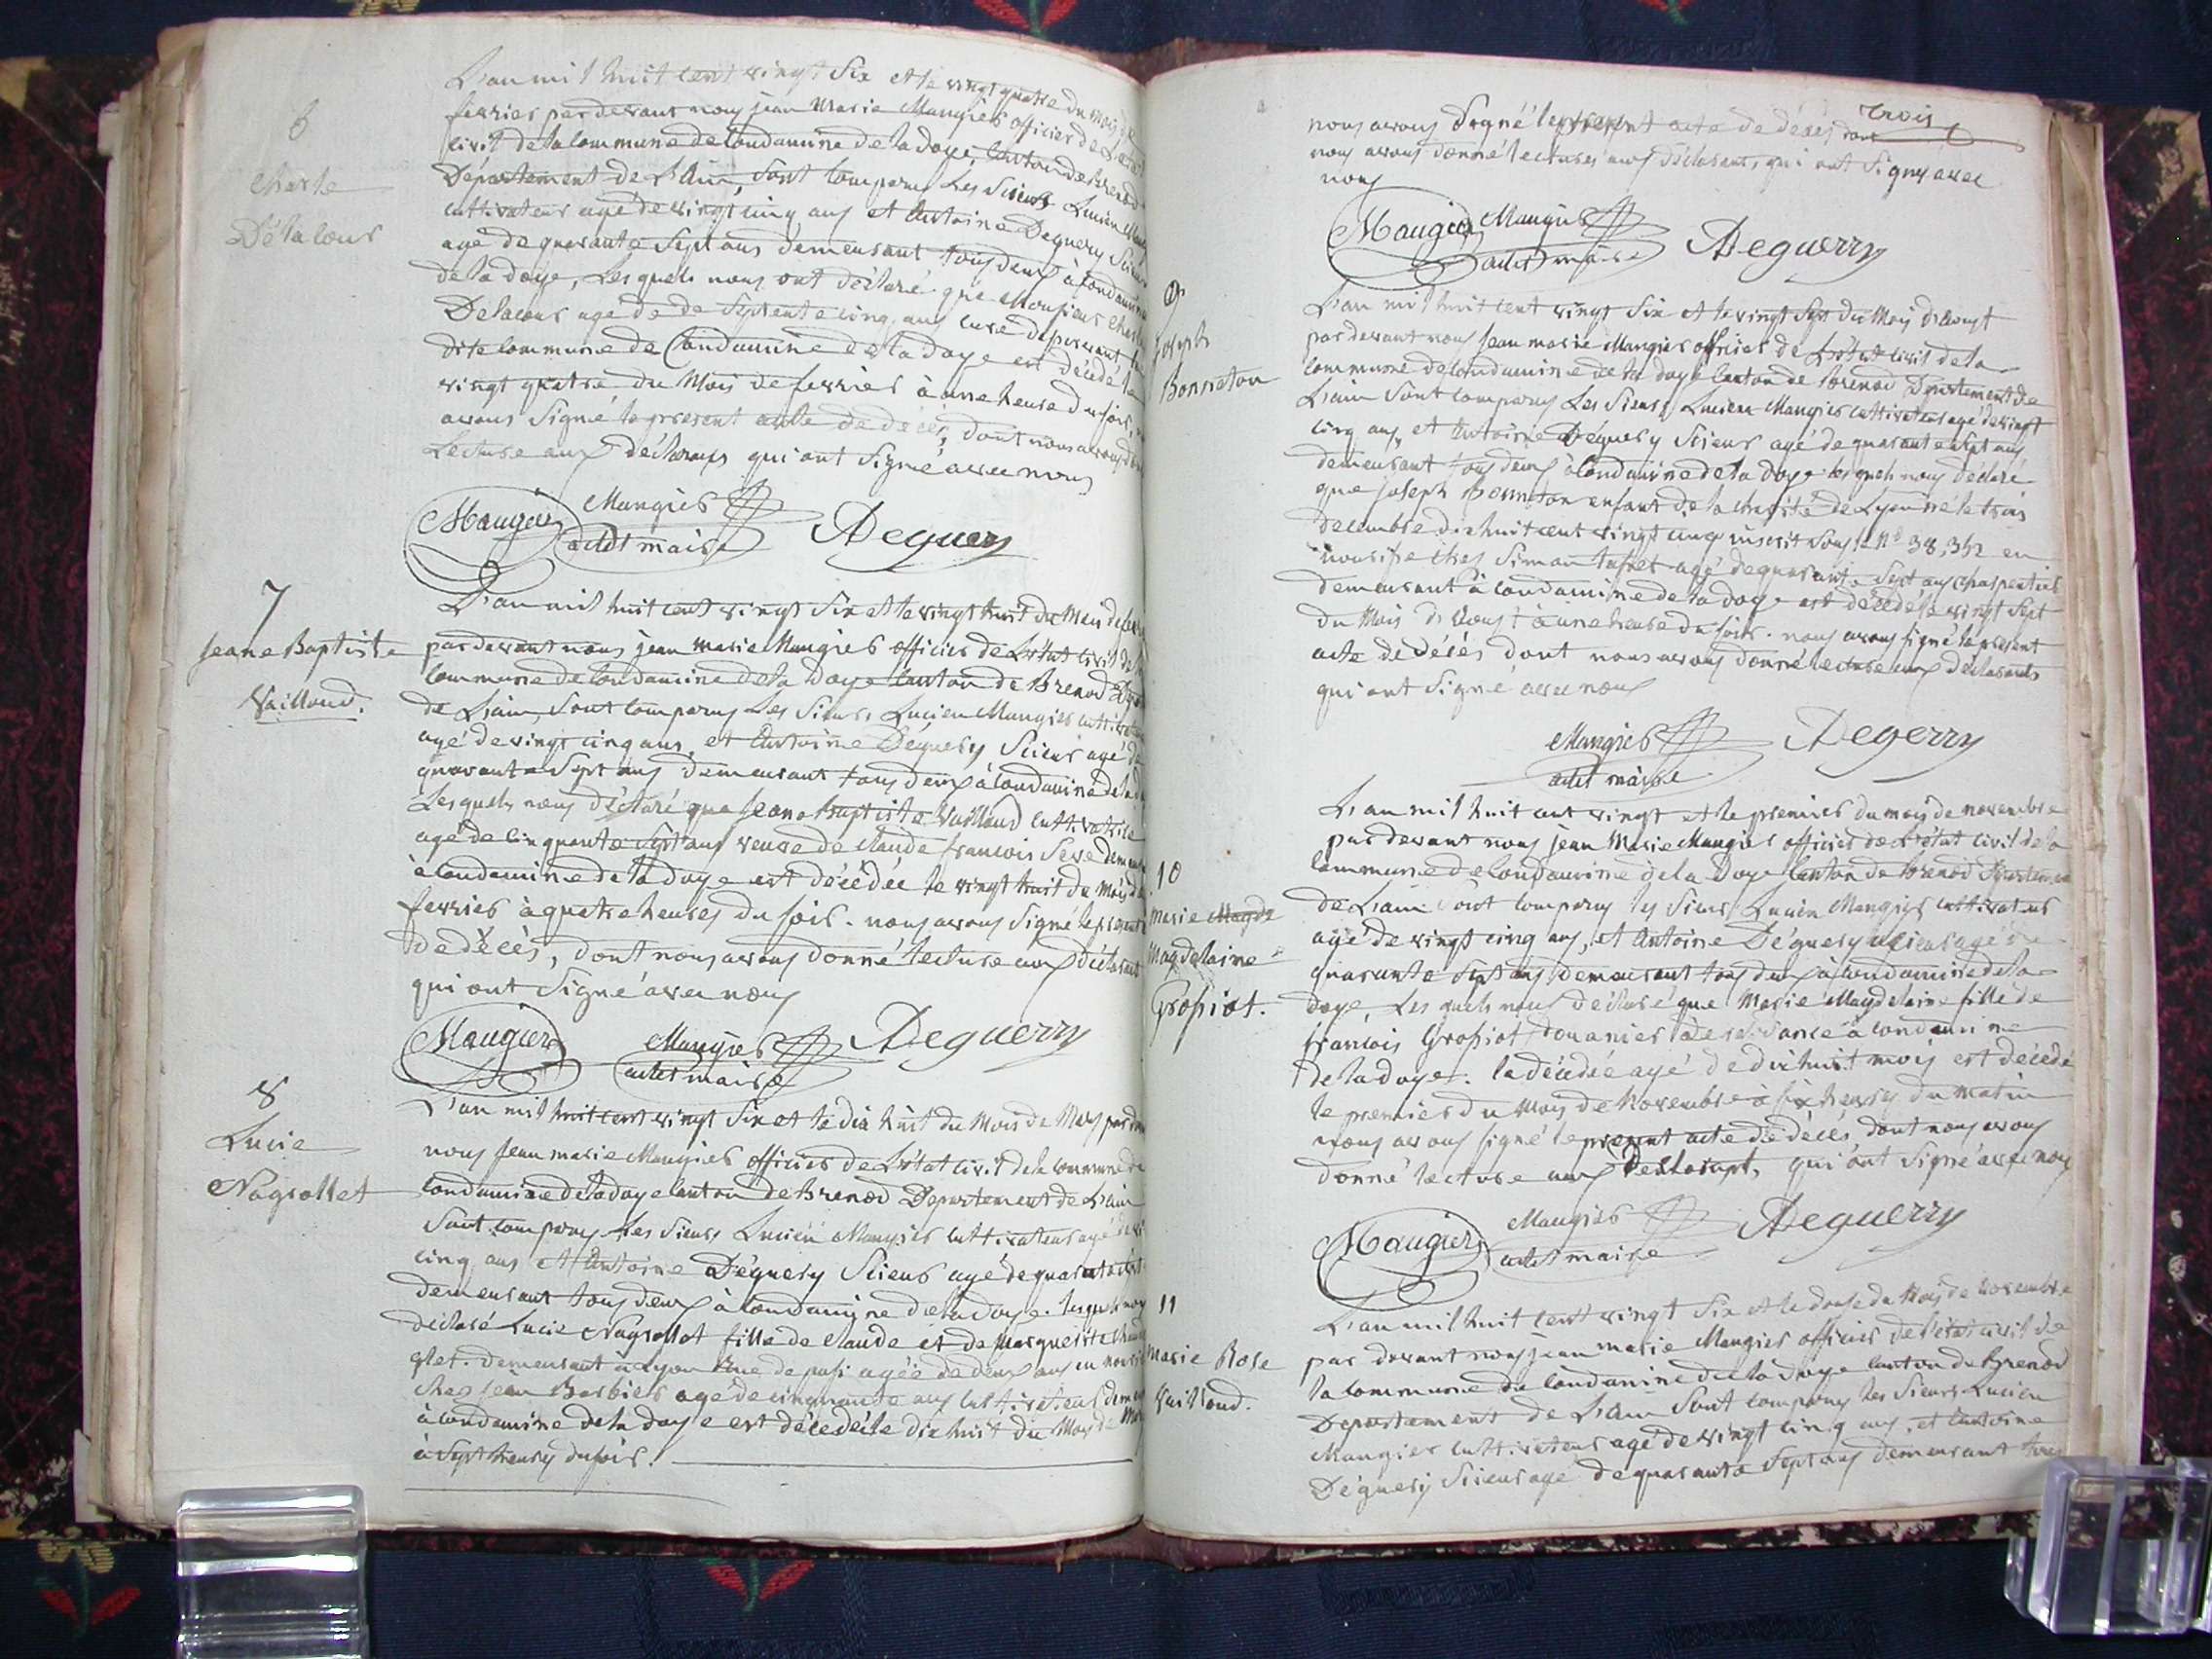 6
Charle
Délacour
L'an mil huit cent vingt six et le vingt quatre du mois de
fevrier par devant nous jean Marie Maugier officier de L'état
civil de la Commune de Condamine de la doye, Canton de Brenod
Département de L'Ain, sont comparus Les Sieurs Lucien
cultivateur agé de vingt cinq ans et Antoine Deguery Scieur
agé de quarante Sept ans demeurant tous deux à Condamine
de la doye, Lesquels nous ont déclaré que Monsieur Charle
Delacour agé de de Septente cinq ans curé
dite commune de Condamine de la doye est décédé le
vingt quatre du Mois de fevrier à une heure du soir,
avons Signé le present acte de décés, dont nous avons
Lecture aux déclarants qui ont Signé avec nous
Maugier Maugier Deguery
adt maire
7
Jeane Baptiste
Vailloud.
L'an mil huit cent vingt six et le vingt huit du Mois de
par devant nous jean Marie Maugier officier de L'état civil de
Commune de Condamine de la doye Canton de Brenod
de L'ain, Sont comparus Les Sieurs Lucien Maugier
agé de vingt cinq ans, et Antoine Déguery Scieur agé de
quarante Sept ans demeurant tous deux à Condamine de la
Lesquels nous déclaré que Jeane Baptiste Vailloud cultivatrice
agé de cinquante Sept ans veuve de Claude francois Seve
à Condamine de la doye est décédée le vingt huit du Mois de
fevrier à quatre heures du soir. nous avons Signé le present
de décés, dont nous avons donné lecture aux déclarants
qui ont Signé avec nous
Maugier Maugier Deguerry
adt maire
8
Lucie
Nagrollet
L'an mil huit cent vingt Six et le dix huit du Mois de Mars par
nous Jean marie Maugier officier de L'état civil de la commune de
Condamine de la doye Canton de Brenod Departement de L'ain
Sont comparus Les Sieurs Lucien Maugier cultivateur agé de
cinq ans et Antoine Déguery Scieur agé de quarante
demeurant tous deux à Condamine de la doye. lesquels nous
déclaré Lucie Nagrollet fille de Claude et de Marguerite
glet. demeurant à Lyon Rue de agée de deux ans en
chez Jean Barbier agé de cinquante ans cultivateur
à Condamine de la doye est décédée le dix huit du Mois de
à Sept heures du soir.
trois
nous avons Signé le present acte de décés dont
nous avons donné lectures aux déclarants, qui ont Signé avec
nous
Maugier Maugier Deguerry
adt maire
9
Joseph
Bonneton
L'an mil huit cent vingt Six et le vingt Sept du Mois d'Aoust
par devant nous Jean marie Maugier officier de L'état civil de la
Commune de Condamine de la doye Canton de Brenod Département de
L'ain Sont comparus Les Sieurs Lucien Maugier cultivateur agé de vingt
cinq ans, et Antoine Déguery Scieur agé de quarante Sept ans
demeurant tous deux à Condamine de la doye lesquels nous déclaré
que Joseph Bonneton enfant de la charité de Lyon né le trois
decembre dix huit cent vingt cinq inscrit Sous le No 38,342 en
nourise chez Simon agé de quarante Sept ans charpentier
demeurant à Condamine de la doye est décédé le vingt Sept
du Mois d'Aoust à une heure du soir. nous avons signé le present
acte de décés dont nous avons donné lecture aux déclarants
qui ont Signé avec nous
Maugier Degerry
adt maire
10
Marie Magde
Magdelaine
Grossiot.
L'an mil huit cent vingt et le premier du mois de novembre
par devant nous jean Marie Maugier officier de L'état civil de la
Commune de Condamine de la Doye Canton de Brenod Departement
de L'ain Sont comparus les Sieurs Lucien Maugier cultivateur
agé de vingt cinq ans, et Antoine Déguery Scieur agé de
quarante Sept ans demeurant tous deux à Condamine de la
doye, Lesquels nous déclaré que Marie Magdelaine fille de
francois Grossiot douanier de résidance à Condamine
de la doye. la décédée agé de dix huit mois est décédé
le premier du Mois de Novembre à six heures du matin
nous avons signé le present acte de décés, dont nous avons
donné lecture aux déclarants, qui ont signé avec nous
Maugier Maugier Deguerry
adt maire
11
Marie Rose
Vailloud.
L'an mil huit cent vingt Six et le douse du Mois de Novembre
par devant nous jean marie Maugier officier de l'état civil de
la commune de Condamine de la doye canton de Brenod
Departement de L'ain Sont comparus les Sieurs Lucien
Maugier cultivateur agé de vingt cinq ans, et Antoine
Déguery Scieur agé de quarante Sept ans demeurant tous